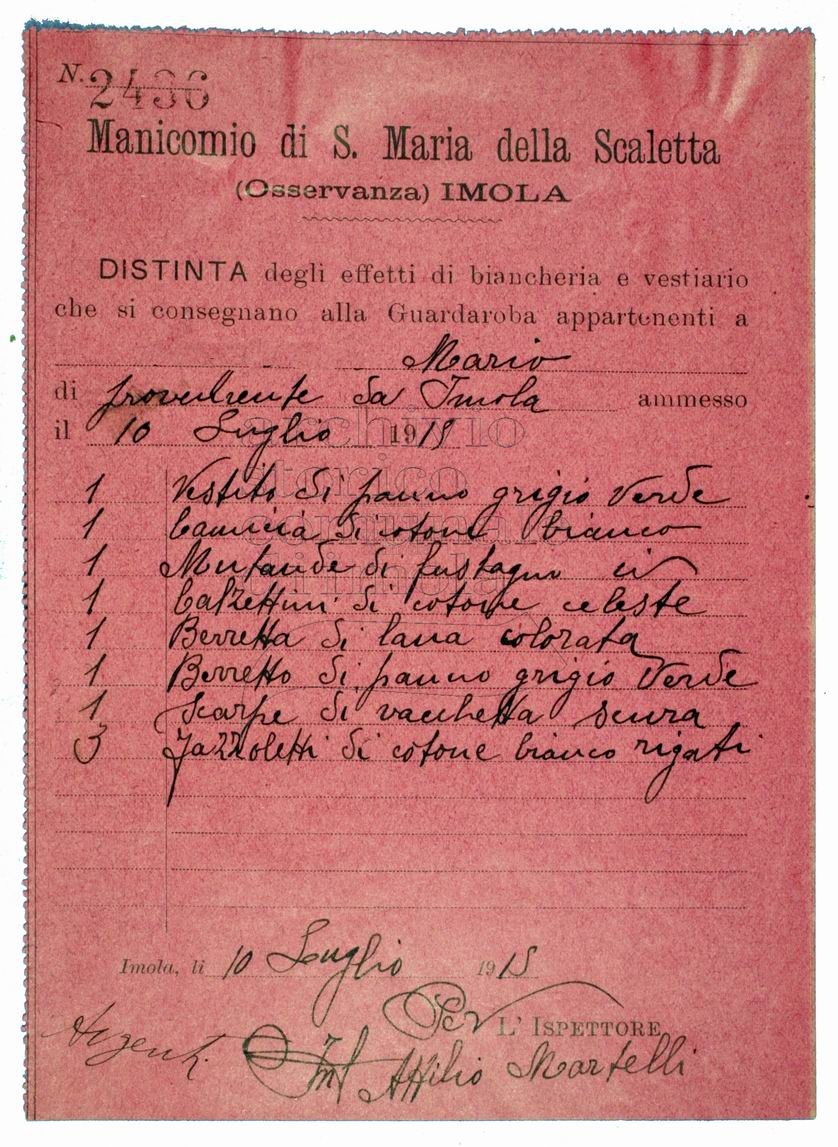 N. 2436
Manicomio di S. Maria della Scaletta
(Osservanza) IMOLA
DISTINTA degli effetti di biancheria e vestiario
che si consegnano alla Guardaroba appartenenti a
Mario
di provenente da Imola ammesso
il 10 Luglio 1915
1 Vestito di panno grigio verde
1 Camicia di cotone bianco
1 Mutande di fustagno
1 Calzettini di cotone celeste
1 Berretta di lana colorata
1 Berretto di panno grigio verde
1 Scarpe di vacchetta scura
3 Fazzoletti di cotone bianco rigati
archivio
storico
comunale
imola
Imola, li 10 Luglio 1915
Per L' ISPETTORE
Attilio Martelli